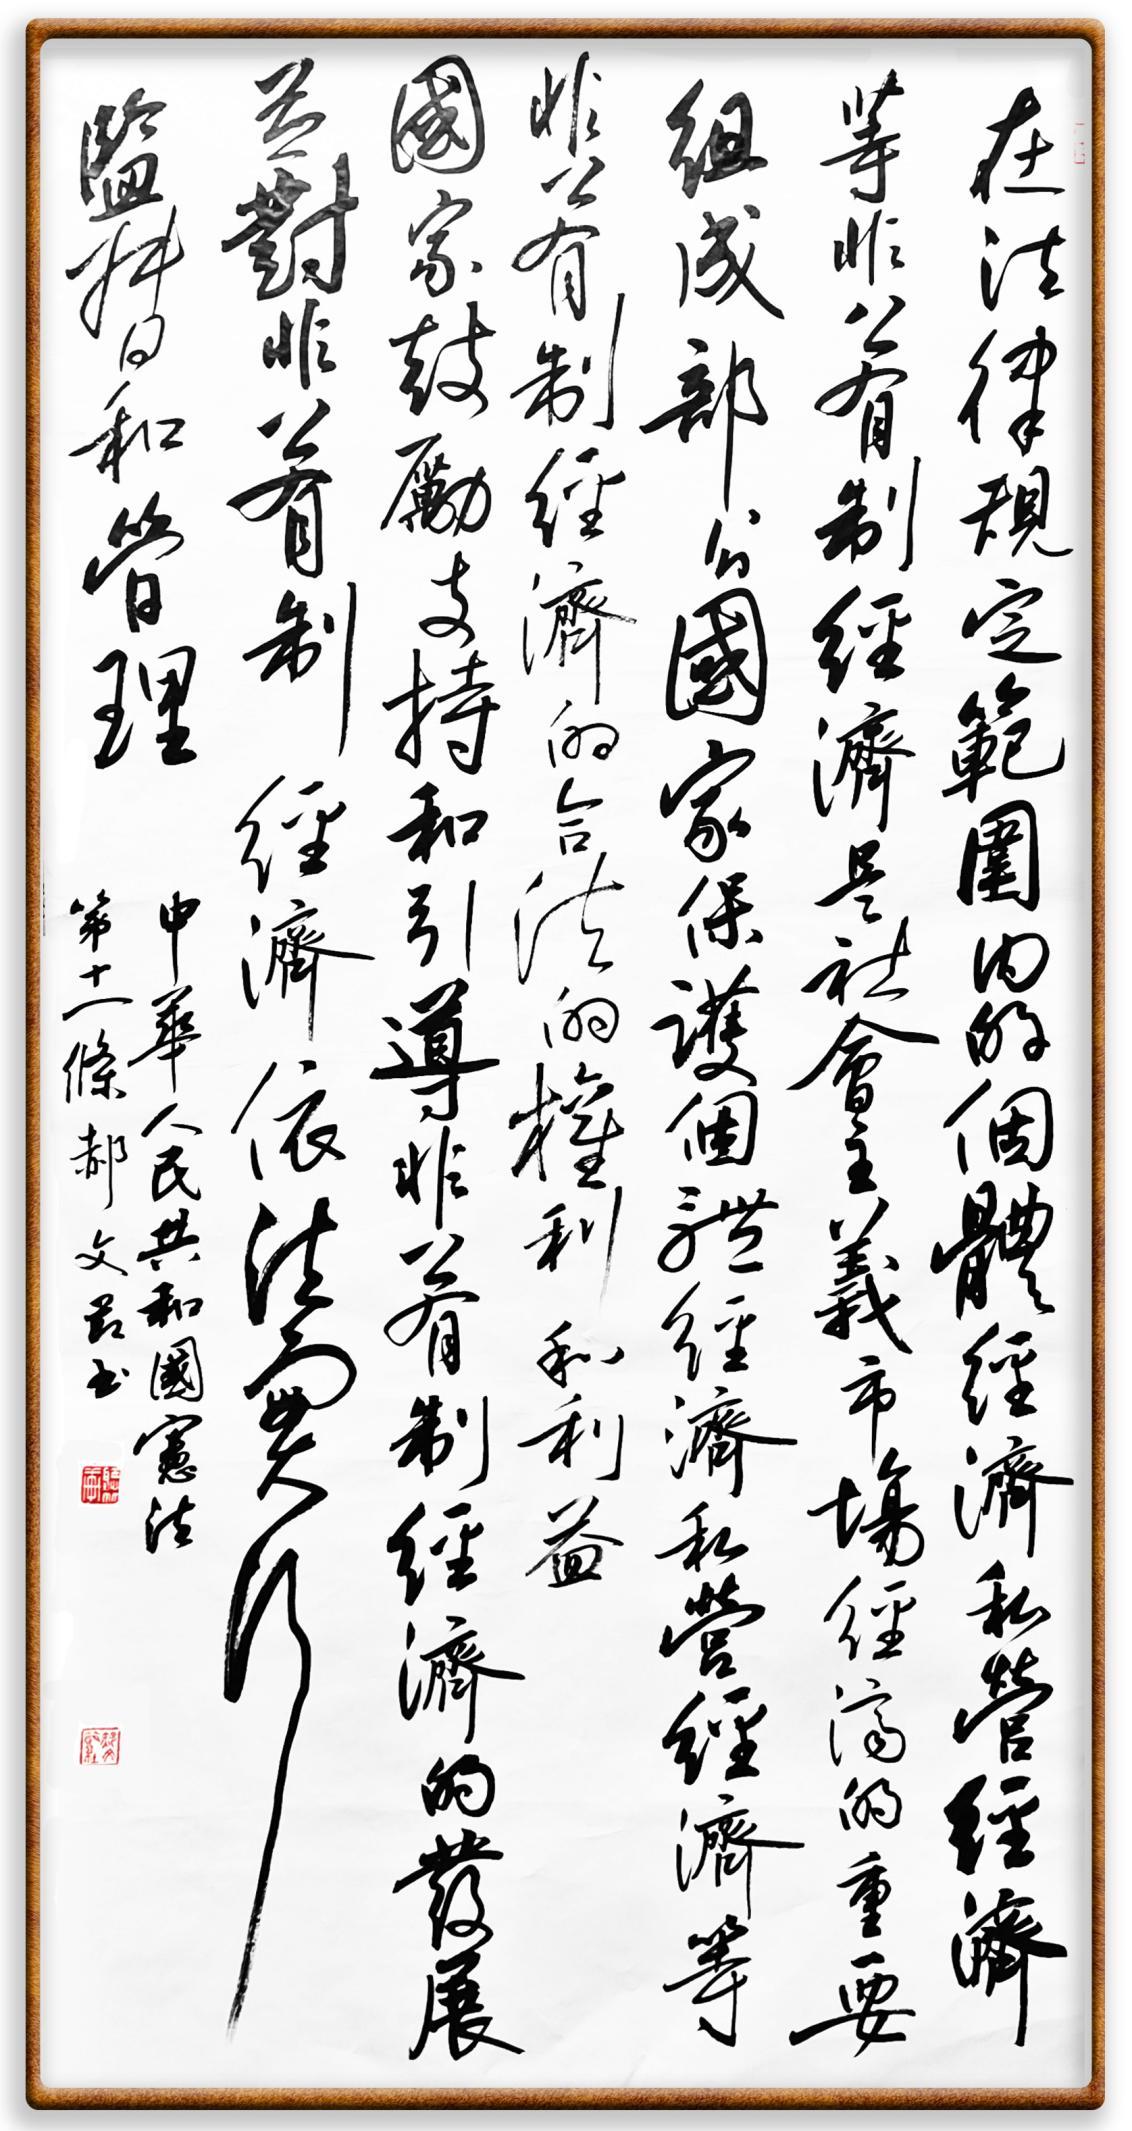 在法律規定範圍内的個體經濟私營經濟
等非公有制經濟是社會主義市場經濟的重要
組成部分國家保護個體經濟私營經濟等
非公有制經濟的合法的權利和利益
國家鼓勵支持和引導非公有制經濟的發展
并對非公有制經濟依法實行
監督和管理
中華人民共和國憲法
第十一條郝文书